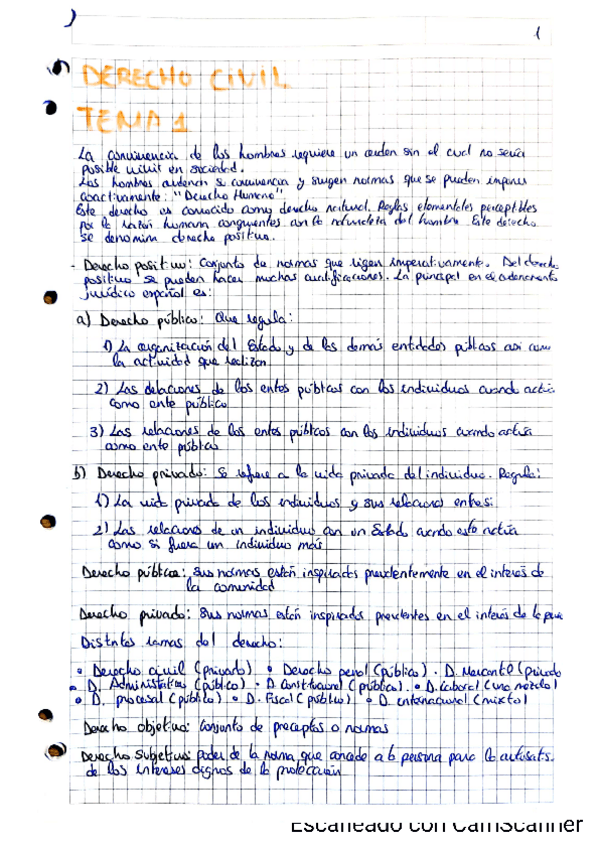 1
DERECHO CIVIL
TEMA 1
La convivencia de los hombres requiere un orden sin el cual no sería
posible vivir en sociedad.
Los hombres ordenan su convivencia y surgen normas que se pueden imponer
coactivamente: "Derecho Humano"
Este derecho es conocido como derecho natural. Reglas elementales perceptibles
por la razón humana congruentes con la naturaleza del hombre. Este derecho
se denomina derecho positivo.
- Derecho positivo: Conjunto de normas que rigen imperativamente. Del derecho
positivo se pueden hacer muchas clasificaciones. La principal en el ordenamiento
jurídico español es:
a) Derecho público: Que regula:
1) La organización del Estado y de los demás entidades públicas asi como
la actividad que realizan
2) Las relaciones de los entes públicos con los individuos cuando actúa
como ente público
3) Las relaciones de los entes públicos con los individuos cuando actúa
como ente público
b) Derecho privado: Se refiere a la vida privada del individuo. Regula:
1) La vida privada de los individuos y sus relaciones entre si
2) Las relaciones de un individuo con un Estado cuando este actúa
como si fuera un individuo más
Derecho público: Sus normas están inspiradas en el interés de
la comunidad
Derecho privado: Sus normas están inspiradas en el interés de
Distintas ramas del derecho:
• Derecho civil (privado) • Derecho penal (público) • D. Mercantil (privado
• D. Administrativo (público) • D. Constitucional (público) • D. Laboral (una mezcla)
• D. procesal (público) • D. Fiscal (público) • D. internacional (mixto)
Derecho objetivo: Conjunto de preceptos o normas
Derecho Subjetivo: poder de la norma que concede a la persona para la autosatis.
de los intereses dignos de la protección
Escaneado con CamScanner